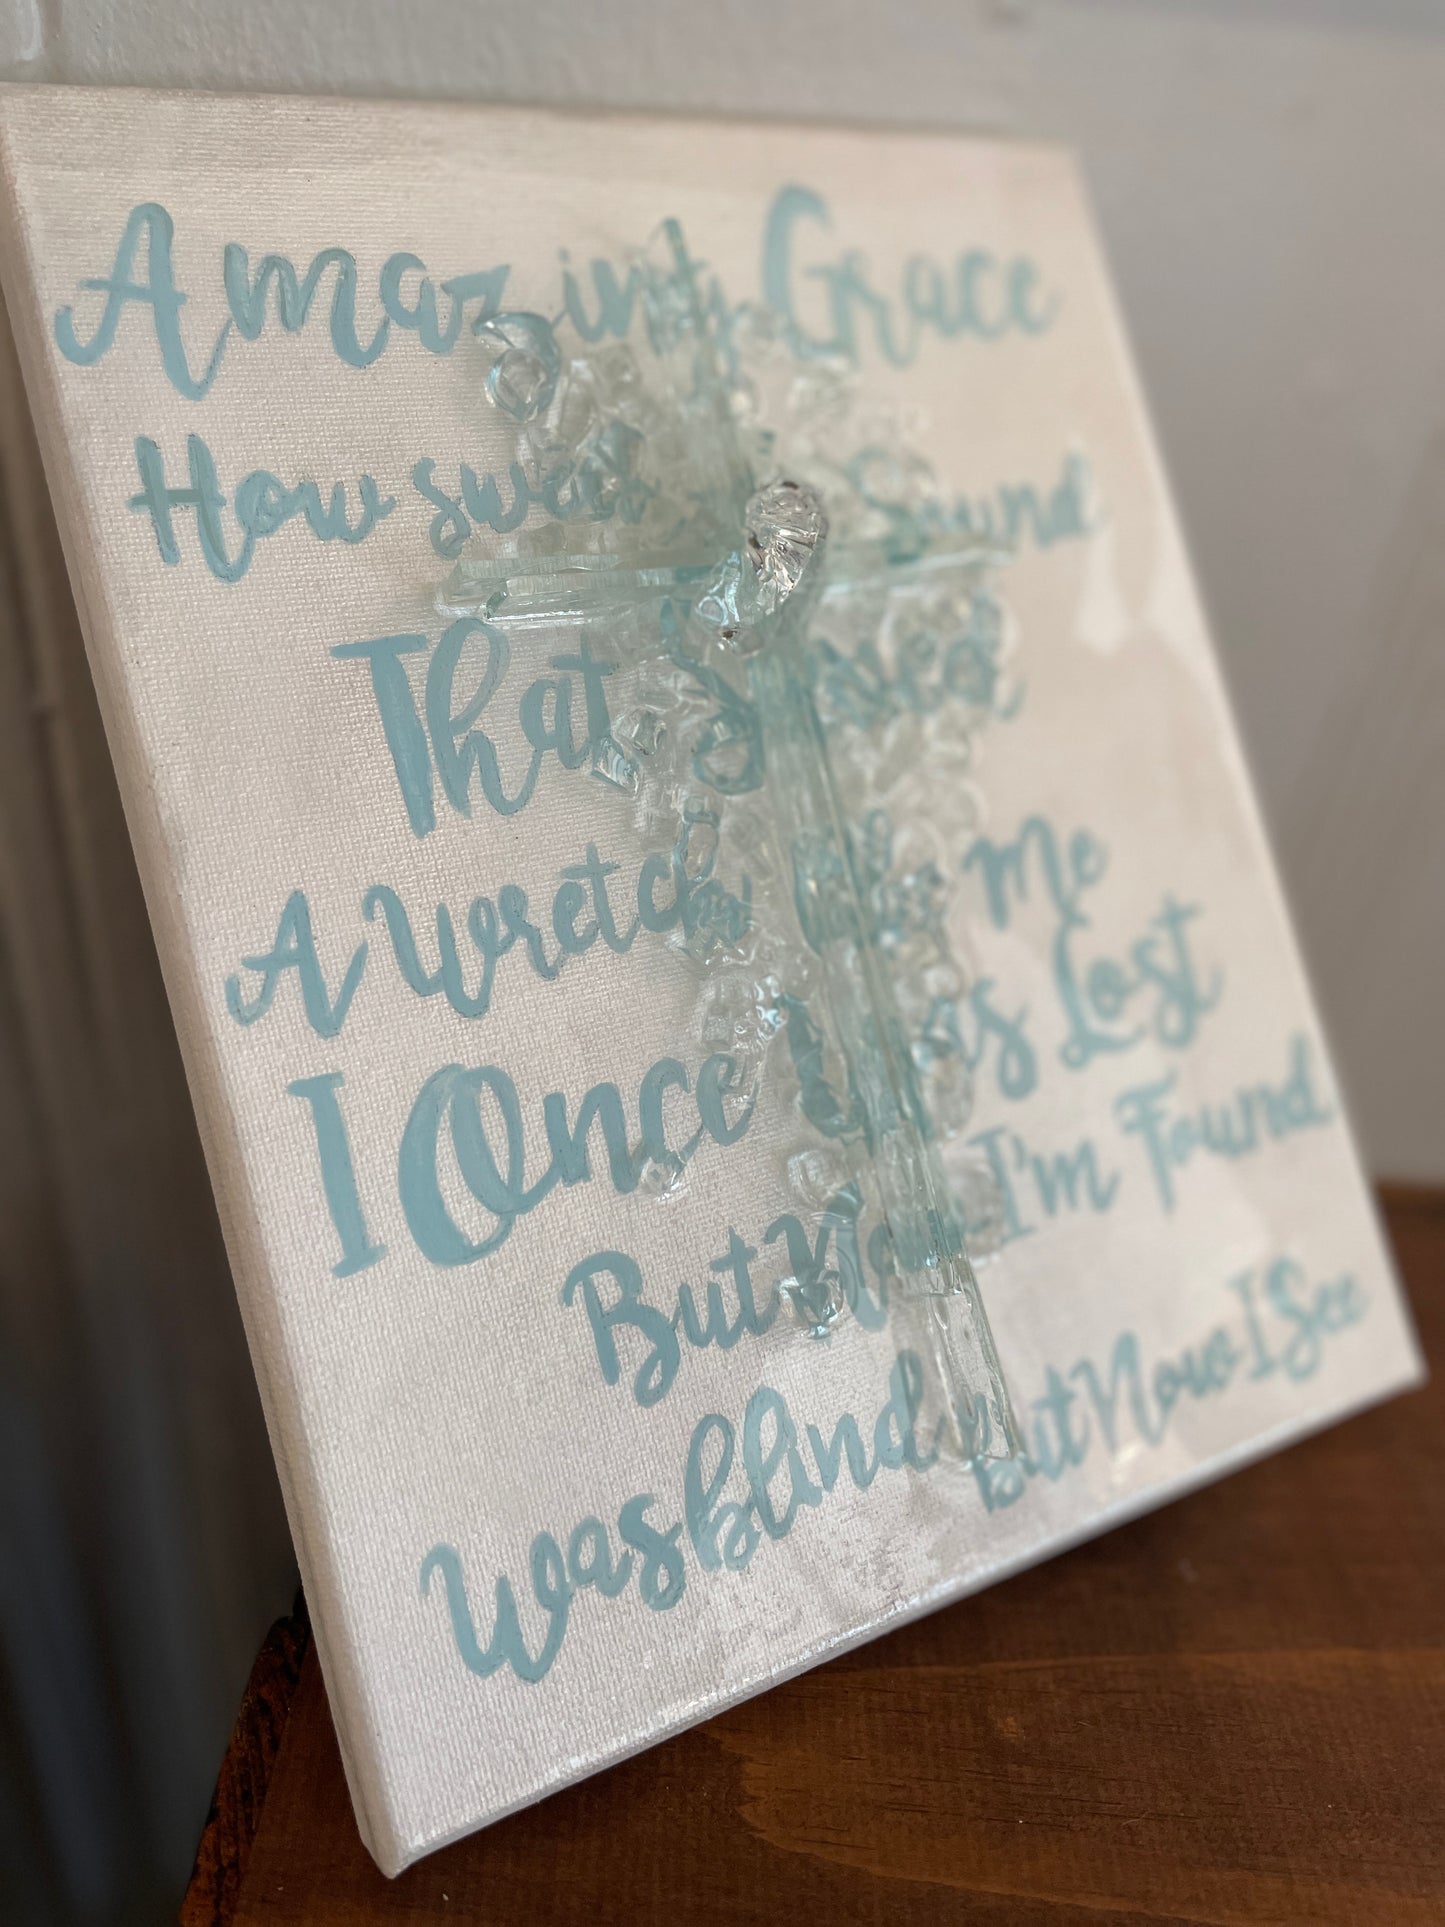 Amazing Grace
How sweet Sound
That Saved
A Wretch Me
I Once Was Lost
But Now I'm Found
Was blind but Now I See